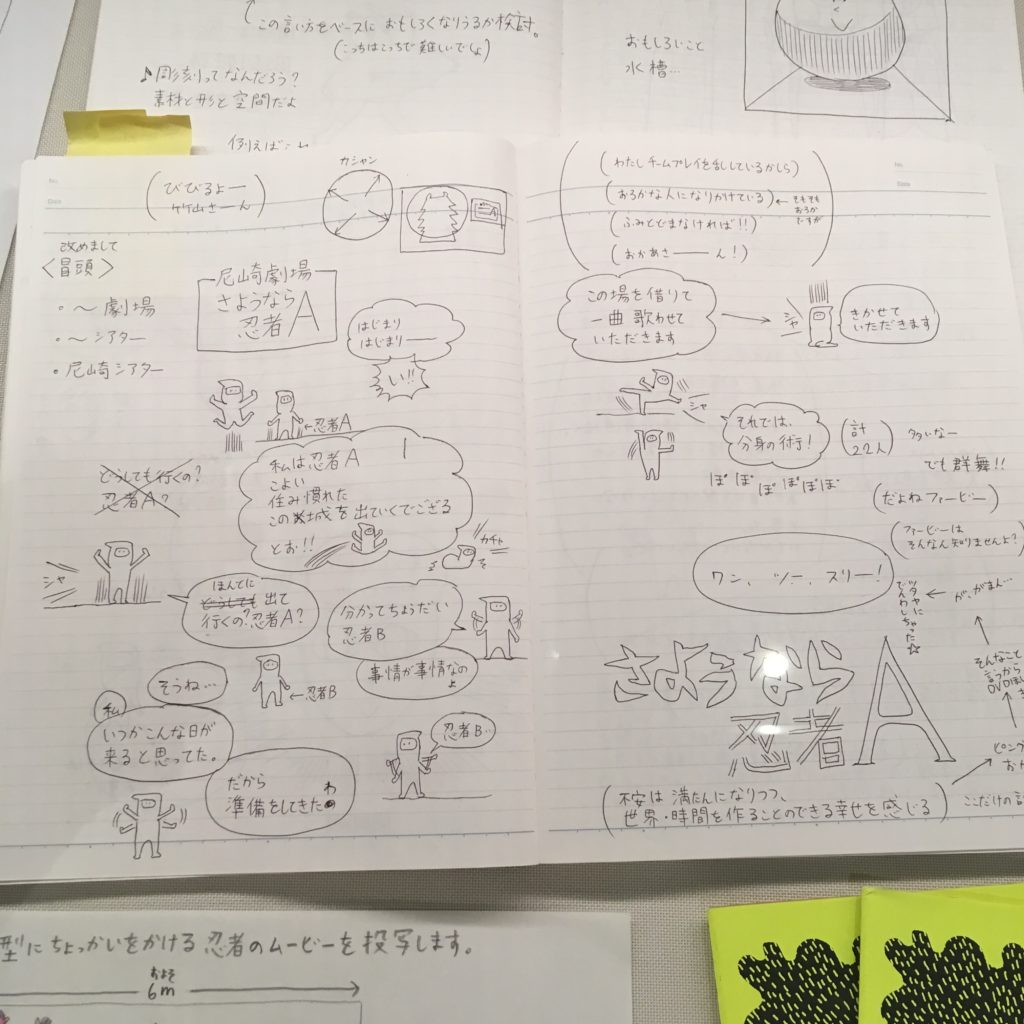 この言い方をベースに おもしろくなりうるか検討。
(こっちはこっちで難しいでしょ)
♪彫刻ってなんだろう?
素材と形と空間だよ
例えば
おもしろいこと
水槽…
(びびるよー
竹山さーん)
カシャン
改めまして
〈冒頭〉
・〜劇場
・〜シアター
・尼崎シアター
尼崎劇場
さようなら
忍者A
はじまり
はじまりー
い!!
←忍者A
私は忍者A
こよい
住み慣れた
この城を出ていくでござる
とお!!
カチャ
どうしても行くの?
忍者A?
シャ
ほんとに
どうしても 出て
行くの?忍者A?
分かってちょうだい
忍者B
事情が事情なの
よ
←忍者B
そうね…
私
いつかこんな日が
来ると思ってた。
忍者B…
だから
準備をしてきたわ
(わたしチームプレイを乱しているかしら)
(おろかな人になりかけている)
←そもそも
おろか
ですが
(ふみとどまなければ!!)
(おかあさーーん!)
この場を借りて
一曲 歌わせて
いただきます
シャ
きかせて
いただきます
シャ
それでは、
分身の術!
(計
22人)
多いなー
でも群舞!!
ぽ ぽ ぽ ぽ ぽ ぽ
(だよねファービー)
(ファービーは
そんなん知りませんよ?)
ワン、ツー、スリー!
ツタヤに
でんわしちゃった☆
← が、がまん…
そんなこと
言うから
さようなら
忍者A
(不安は満たんになりつつ、
世界・時間を作ることのできる幸せを感じる)
ここだけの
型にちょっかいをかける忍者のムービーを投写します。
およそ
6m